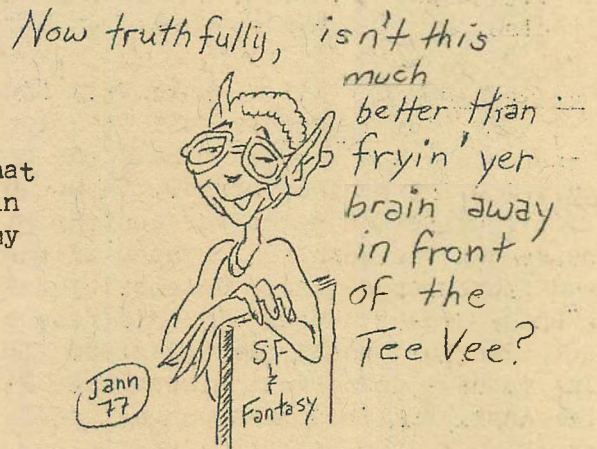 Now truthfully, isn't this
much
better than
fryin' yer
brain away
in front
of the
Tee Vee?
hat
in
SF
&
Fantasy
Jann
77